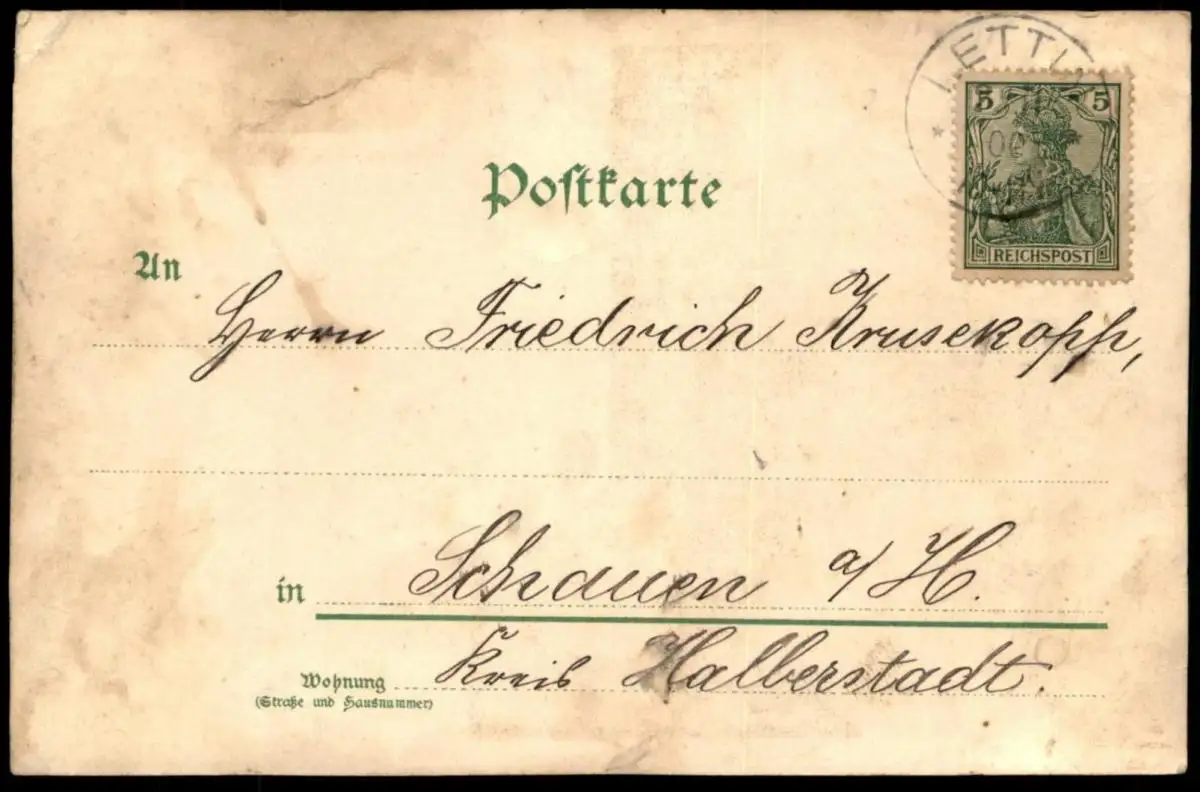 LETTIN
5 5
00
REICHSPOST
Postkarte
An
Herrn Friedrich Krusekopf,
in Schauen a/H.
Kreis Halberstadt.
Wohnung
(Straße und Hausnummer)